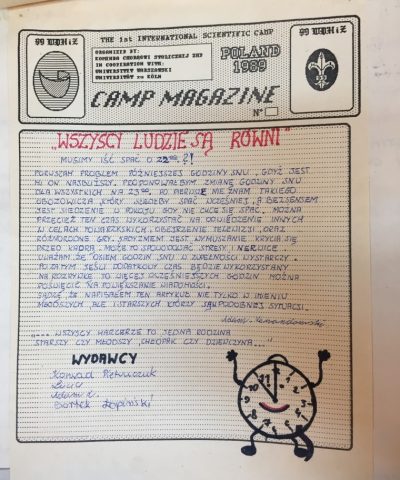 THE 1st INTERNATIONAL SCIENTIFIC CAMP
ORGANIZED BY:
KOMENDA CHORĄGWI STOŁECZNEJ ZHP
IN COOPERATION WITH:
UNIWERSYTET WARSZAWSKI
UNIWERSYTET ZU KÖLN
POLAND
1989
CAMP MAGAZINE
N°
"WSZYSCY LUDZIE SĄ RÓWNI"
MUSIMY IŚĆ SPAĆ O 22⁰⁰?!
PORUSZAM PROBLEM PÓŹNIEJSZEJ GODZINY SNU, GDYŻ JEST
MI ON NAJBLIŻSZY. PROPONOWAŁBYM ZMIANĘ GODZINY SNU
DLA WSZYSTKICH NA 23⁰⁰, PO NIE ZNAM TAKIEGO
OBOZOWICZA, KTÓRY SZEDŁBY SPAĆ WCZEŚNIEJ, A BEZSENSEM
JEST SIEDZENIE W POKOJU GDY NIE CHCE SIĘ SPAĆ. MOŻNA
PRZECIEŻ TEN CZAS WYKORZYSTAĆ NA ODWIEDZENIE INNYCH
W CELACH TOWARZYSKICH, OBEJRZENIE TELEWIZJI, ORAZ
RÓŻNORODNE GRY. SADYZMEM JEST WYMUSZANIE KRYCIA SIĘ
PRZED KADRĄ. MOŻE TO SPOWODOWAĆ STRESY I NERWICE.
UWAŻAM, ŻE OSIEM GODZIN SNU W ZUPEŁNOŚCI WYSTARCZY.
POZATYM JEŚLI DODATKOWY CZAS BĘDZIE WYKORZYSTANY
NA ROZRYWKĘ TO WIĘCEJ WCZEŚNIEJSZYCH GODZIN MOŻNA
POŚWIĘCIĆ NA POWIĘKSZANIE WIADOMOŚCI.
SĄDZĘ, ŻE NAPISAŁEM TEN ARTYKUŁ NIE TYLKO W IMIENIU
MŁODSZYCH, ALE I STARSZYCH KTÓRZY SĄ W PODOBNEJ SYTUACJI.
Adam
"... WSZYSCY HARCERZE TO JEDNA RODZINA
STARSZY CZY MŁODSZY, CHŁOPAK CZY DZIEWCZYNA..."
WYDAWCY
Konrad Pietruczuk
Adam L.
Bartek Łapiński
12
1
2
3
4
5
6
7
8
9
10
11